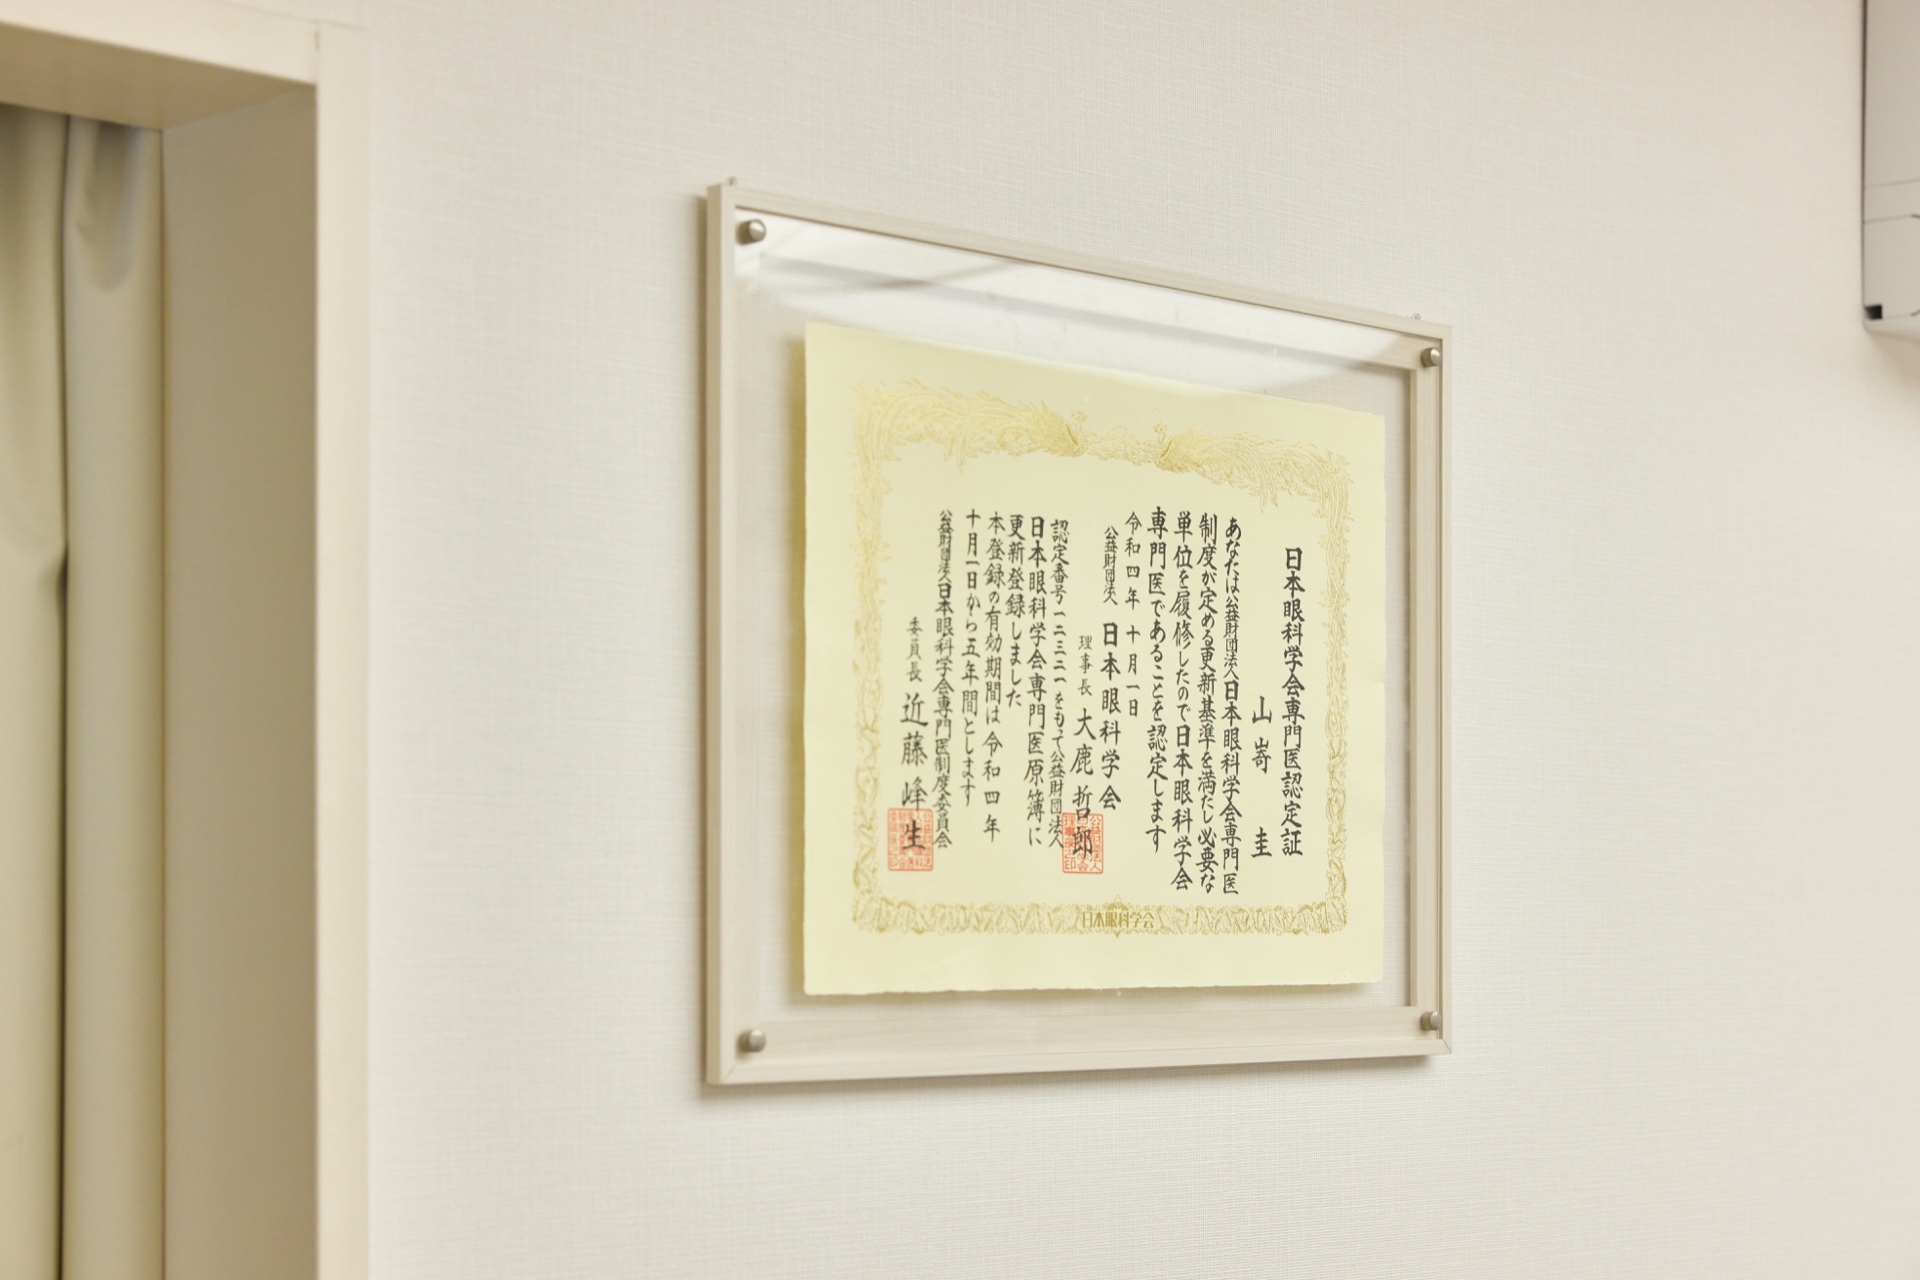 日本眼科学会専門医認定証
山嵜 圭
あなたは公益財団法人日本眼科学会専門医
制度が定める更新基準を満たし必要な
単位を履修したので日本眼科学会
専門医であることを認定します
令和四年 十月一日
公益財団法人 日本眼科学会
理事長 大鹿哲郎
認定番号一二三二一をもって公益財団法人
日本眼科学会専門医原簿に
更新登録しました
本登録の有効期間は令和四年
十月一日から五年間とします
公益財団法人日本眼科学会専門医制度委員会
委員長 近藤峰生
日本眼科学会